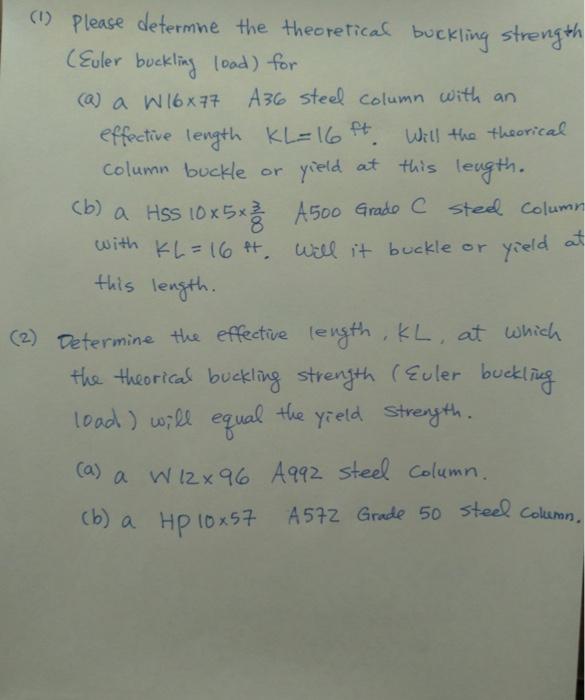 (1) Please determine the theoretical buckling strength
(Euler buckling load) for
(a) a W16x77 A36 steel column with an
effective length KL=16 ft. Will the theorical
column buckle or yield at this length.
(b) a HSS 10x5x3/8 A500 Grade C steel column
with KL=16 ft. Will it buckle or yield at
this length.
(2) Determine the effective length, KL, at which
the theorical buckling strength (Euler buckling
load) will equal the yield strength.
(a) a W12x96 A992 steel column.
(b) a HP10x57 A572 Grade 50 steel column.